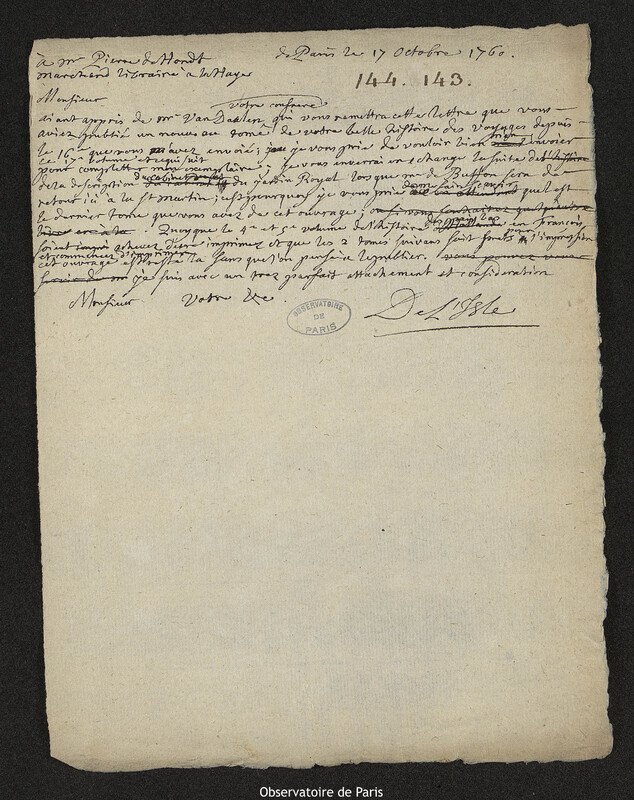 à Mr Pierre de Hondt de Paris le 17 Octobre 1760.
Marchand libraire à la Haye
144. 143.
Monsieur
votre confrere
aiant appris de Mr Van Daalen qui vous remettra cette lettre que vous
aviez publié un nouveau tome de votre belle histoire des voyages depuis
le 16e que vous m'avez envoié; je vous prie de vouloir bien envoier
ce 17e volume et ce qui suit
pour completter mon exemplaire; je vous enverrai en échange la suite
de la description du cabinet du Jardin Royal lorsque Mr de Buffon sera de
retour ici à la St Martin; c'est pourquoi je vous prie de me faire quel est
le dernier tome que vous avez de cet ouvrage;
Quoyque le 4e et 5e volume de l'histoire des en François
soient achevez d'être imprimez et que les 2 tomes suivans soit prets pour l'impression
cet ouvrage sans que l'on pense à le publier.
je suis avec un trez parfait attachement et consideration
Monsieur Votre &c.
De L'Isle
OBSERVATOIRE
DE
PARIS
Observatoire de Paris